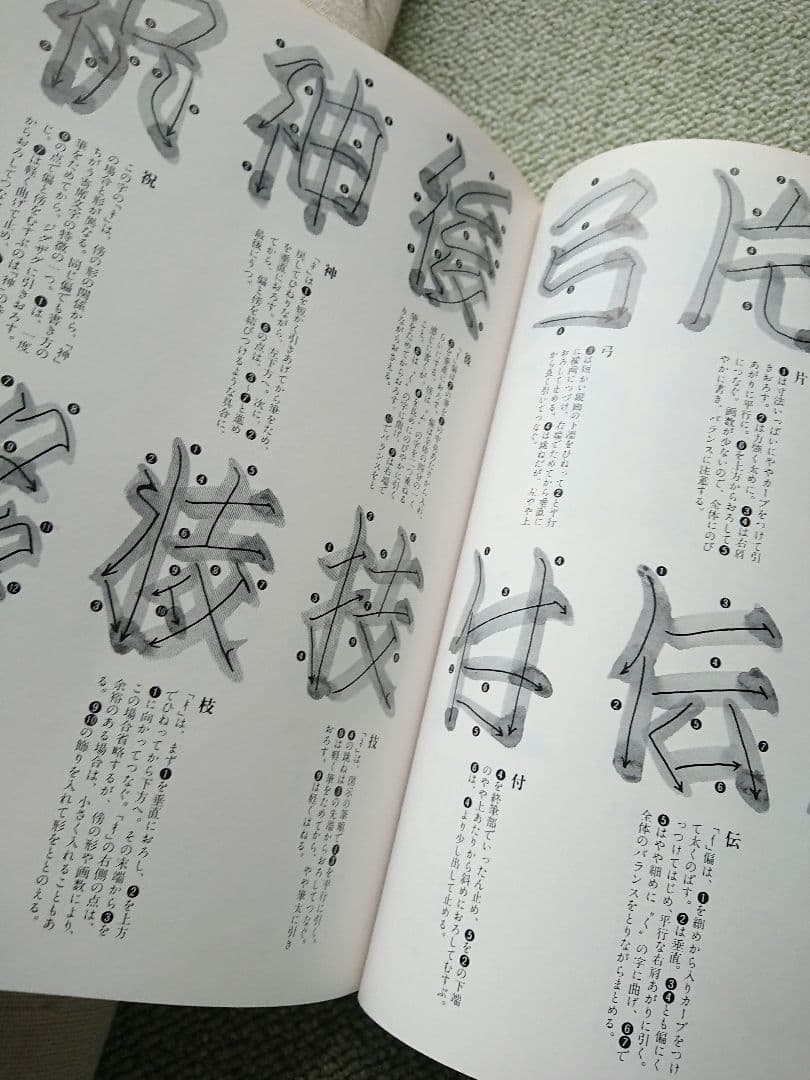 片
❶は寸法いっぱいにややカーブをつけて引
きおろす。❷は力強く太めに。❸❹は右肩
あがりに平行に。❻を上方からおろして❺
につなぐ。画数が少ないので、全体にのび
やかに書き、バランスに注意する。
弓
❸は短かい縦画の下端をひねって❷と平行
に横画につづけ、右端でためてから垂直に
おろして止める。❹は跳ねだが、やや上
伝
「亻」偏は、❶を細めから入りカーブをつけ
て太くのばす。❷は垂直。❸❹とも偏にく
っつけてはじめ、平行な右肩あがりに引く。
❺はやや細めに〝く〟の字に曲げ、❻❼で
全体のバランスをとりながらまとめる。
付
❹を終筆部でいったん止め、❺を❷の下端
のやや上あたりから斜めにおろしてむすぶ。
❻は、❹より少し出して止める。
後
神
「礻」は❶を短かく引きあげてから筆をため、
戻してひねりながら、左下方へ。次に、❷
を垂直におろす。❻の点は、❸〜❼と進め
てから、偏と傍を結びつけるような具合に、
最後にうつ。
祝
この字の「礻」は、傍の形の関係から、「神」
の場合と形が異なる。同じ偏でも書き方の
ちがう寄席文字の特徴の一つ。❶は、一度
筆をためてから、ジグザグに引きおろす。
❻の点で偏と傍をむすぶのは「神」
じ。❼は軽く曲げて止め、
からおろしてつな
技
「扌」は、図示の筆順で❶❸を平行に引く。
❹の跳ねは❸の先端からおろしてつなぐ。
❽は軽く筆をためてから、やや筆太に引き
おろす。❾は軽くはねる。
枝
「木」は、まず❶を垂直におろし、❷を上方
でひねってから下方へ。その末端から❸を
❶に向かってつなぐ。「木」の右側の点は、
この場合省略するが、傍の形や画数により、
余裕のある場合は、小さく入れることもあ
る。❾❿の飾りを入れて形をととのえる。